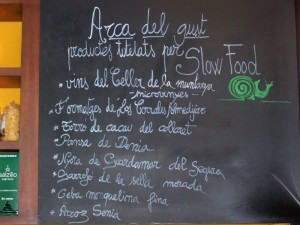 Arca del gust
productes tutelats per
Slow Food
* vins del Celler de la muntanya
microvinyes
* Formatges de Los Corrales Almedíjar
* Torró de cacau del collaret
* Pansa de Denia
* Nyora de Guardamar del Segura
* de la sella morada
* Ceba morquelina fina
* Arroz Senia